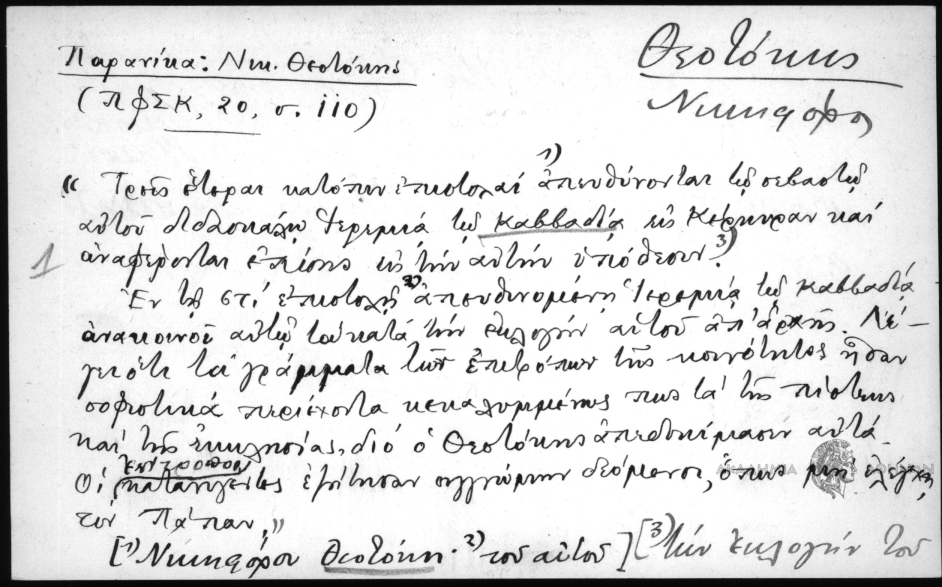 Παρανίκα: Νικ. Θεοτόκης
(ΠΦΣΚ, 20, σ. 110)
Θεοτόκης
Νικηφόρος
« Τρεῖς ἕτεραι κατόπιν ἐπιστολαί 1) ἀπευθύνονται τῷ σεβαστῷ
αὐτοῦ διδασκάλῳ Ἱερεμίᾳ τῷ Καββαδίᾳ εἰς Κέρκυραν καί
1 ἀναφέρονται ἐπίσης εἰς τήν αὐτήν ὑπόθεσιν. 3)
Ἐν τῇ στί ἐπιστολῇ 2) ἀπευθυνομένῃ Ἱερεμίᾳ τῷ Καββαδίᾳ
ἀνακοινοῖ αὐτῷ τά κατά τήν ἐκλογήν αὐτοῦ ἀπ' ἀρχῆς. Λέ-
γει ὅτι τά γράμματα τῶν ἐπιτρόπων τῆς κοινότητος ἦσαν
σοφιστικά περιέχοντα κεκαλυμμένως πως τά τῆς πίστεως
καί τῆς ἐκκλησίας, διό ὁ Θεοτόκης ἀπεδοκίμασεν αὐτά.
Οἱ ἐπίτροποι καταπλαγέντες ἐζήτησαν συγγνώμην δεόμενοι, ὅπως μή ἐλέγχῃ
τόν Πάπαν"
[1) Νικηφόρου Θεοτόκη. 2) τοῦ αὐτοῦ] [3) τήν ἐκλογήν του
ΑΚΑΔΗΜΙΑ ΑΘΗΝΩΝ